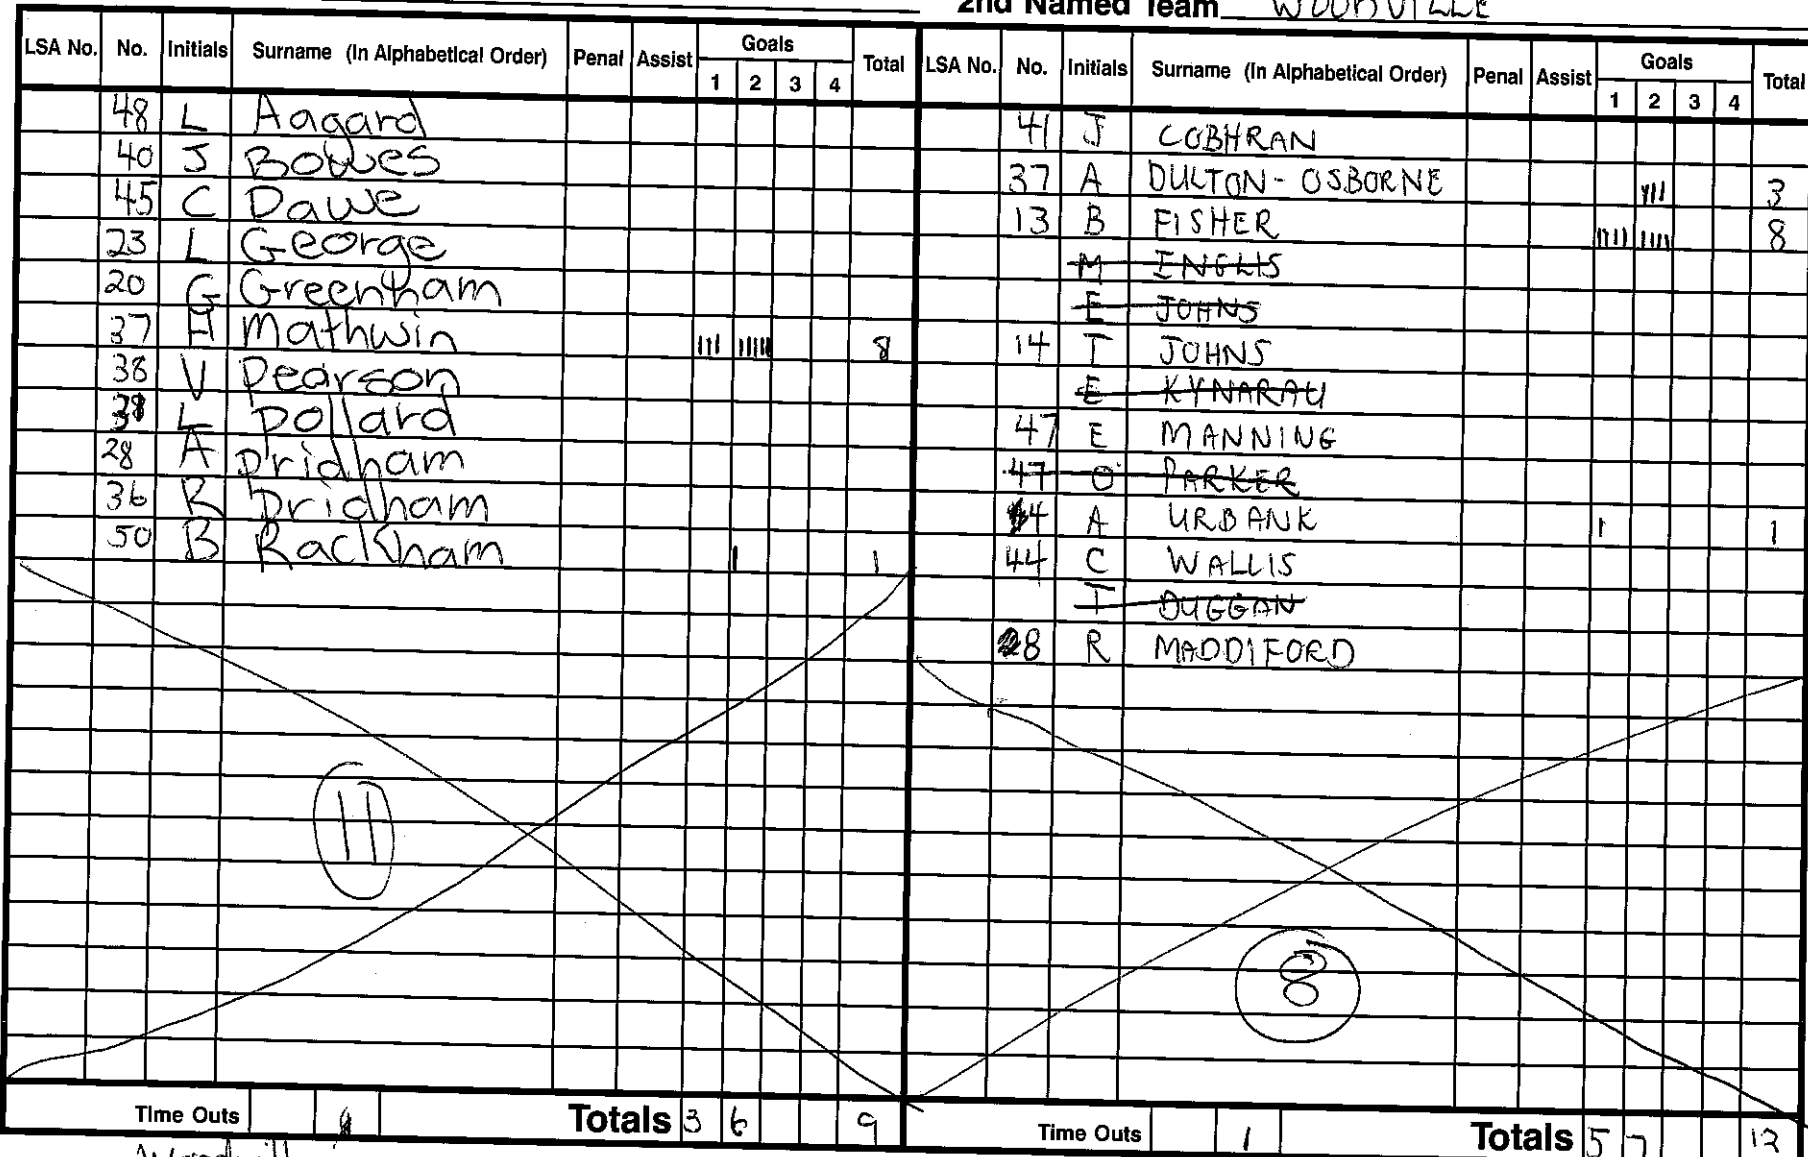 2nd Named Team WOODVILLE
LSA No. No. Initials Surname (In Alphabetical Order) Penal Assist Goals 1 2 3 4 Total
48 L Aagard
40 J Bowes
45 C Dawe
23 L George
20 G Greenham
37 H Mathwin III IIIII 8
38 V Pearson
L Pollard
28 A Pridham
36 R Pridham
50 B Rackham I 1
11
Time Outs Totals 3 6 9
LSA No. No. Initials Surname (In Alphabetical Order) Penal Assist Goals 1 2 3 4 Total
41 J COBHRAN
37 A DULTON-OSBORNE III 3
13 B FISHER IIII IIII 8
M INGLIS
E JOHNS
14 T JOHNS
E KYNARAU
47 E MANNING
47 O PARKER
A URBANK I 1
44 C WALLIS
T DUGGAN
R MADDIFORD
8
Time Outs 1 Totals 5 7